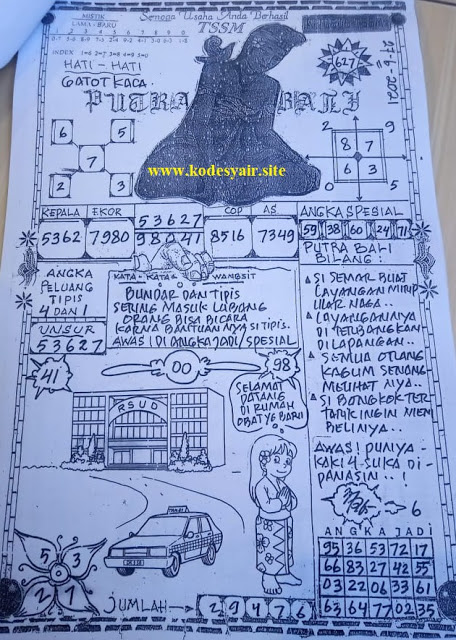 MISTIK
LAMA - BARU
Semoga Usaha Anda Berhasil
TSSM
INDEX 1=6 2=7 3=8 4=9 5=0
HATI - HATI
GATOT KACA
PUTRA BALI
627
www.kodesyair.site
6 5
7
2 3
2 9
8 7
6 3
0 5
KEPALA EKOR 53627 COP AS ANGKA SPESIAL
5362 7980 98041 8516 7349 59 38 60 24 71
PUTRA BALI
BILANG :
ANGKA
PELUANG
TIPIS
4 DAN 1
UNSUR
53627
KATA - KATA WANGSIT
BUNDAR DAN TIPIS
SERING MASUK LUBANG
ORANG BISA BICARA
KARNA BANTUAN NYA SI TIPIS.
AWAS! DI ANGKA JADI / SPESIAL
SI SEMAR BUAT
LAYANGAN MIRIP
ULAR NAGA..
LAYANGANNYA
DI TERBANGKAN
DI LAPANGAN..
SEMUA ORANG
KAGUM SENANG
MELIHAT NYA..
SI BONGKOK TER
TARIK INGIN MEM
BELINYA..
AWAS! PUNYA -
KAKI 4 SUKA DI -
PANASIN.. !
41
00
98
RSUD
SELAMAT
DATANG
DI RUMAH
OBAT YE BARU
TAXI
6
5 3
2 1
ANGKA JADI
95 36 53 72 17
66 83 27 42 55
03 22 06 33 61
63 64 77 02 35
JUMLAH → 2 9 4 7 6